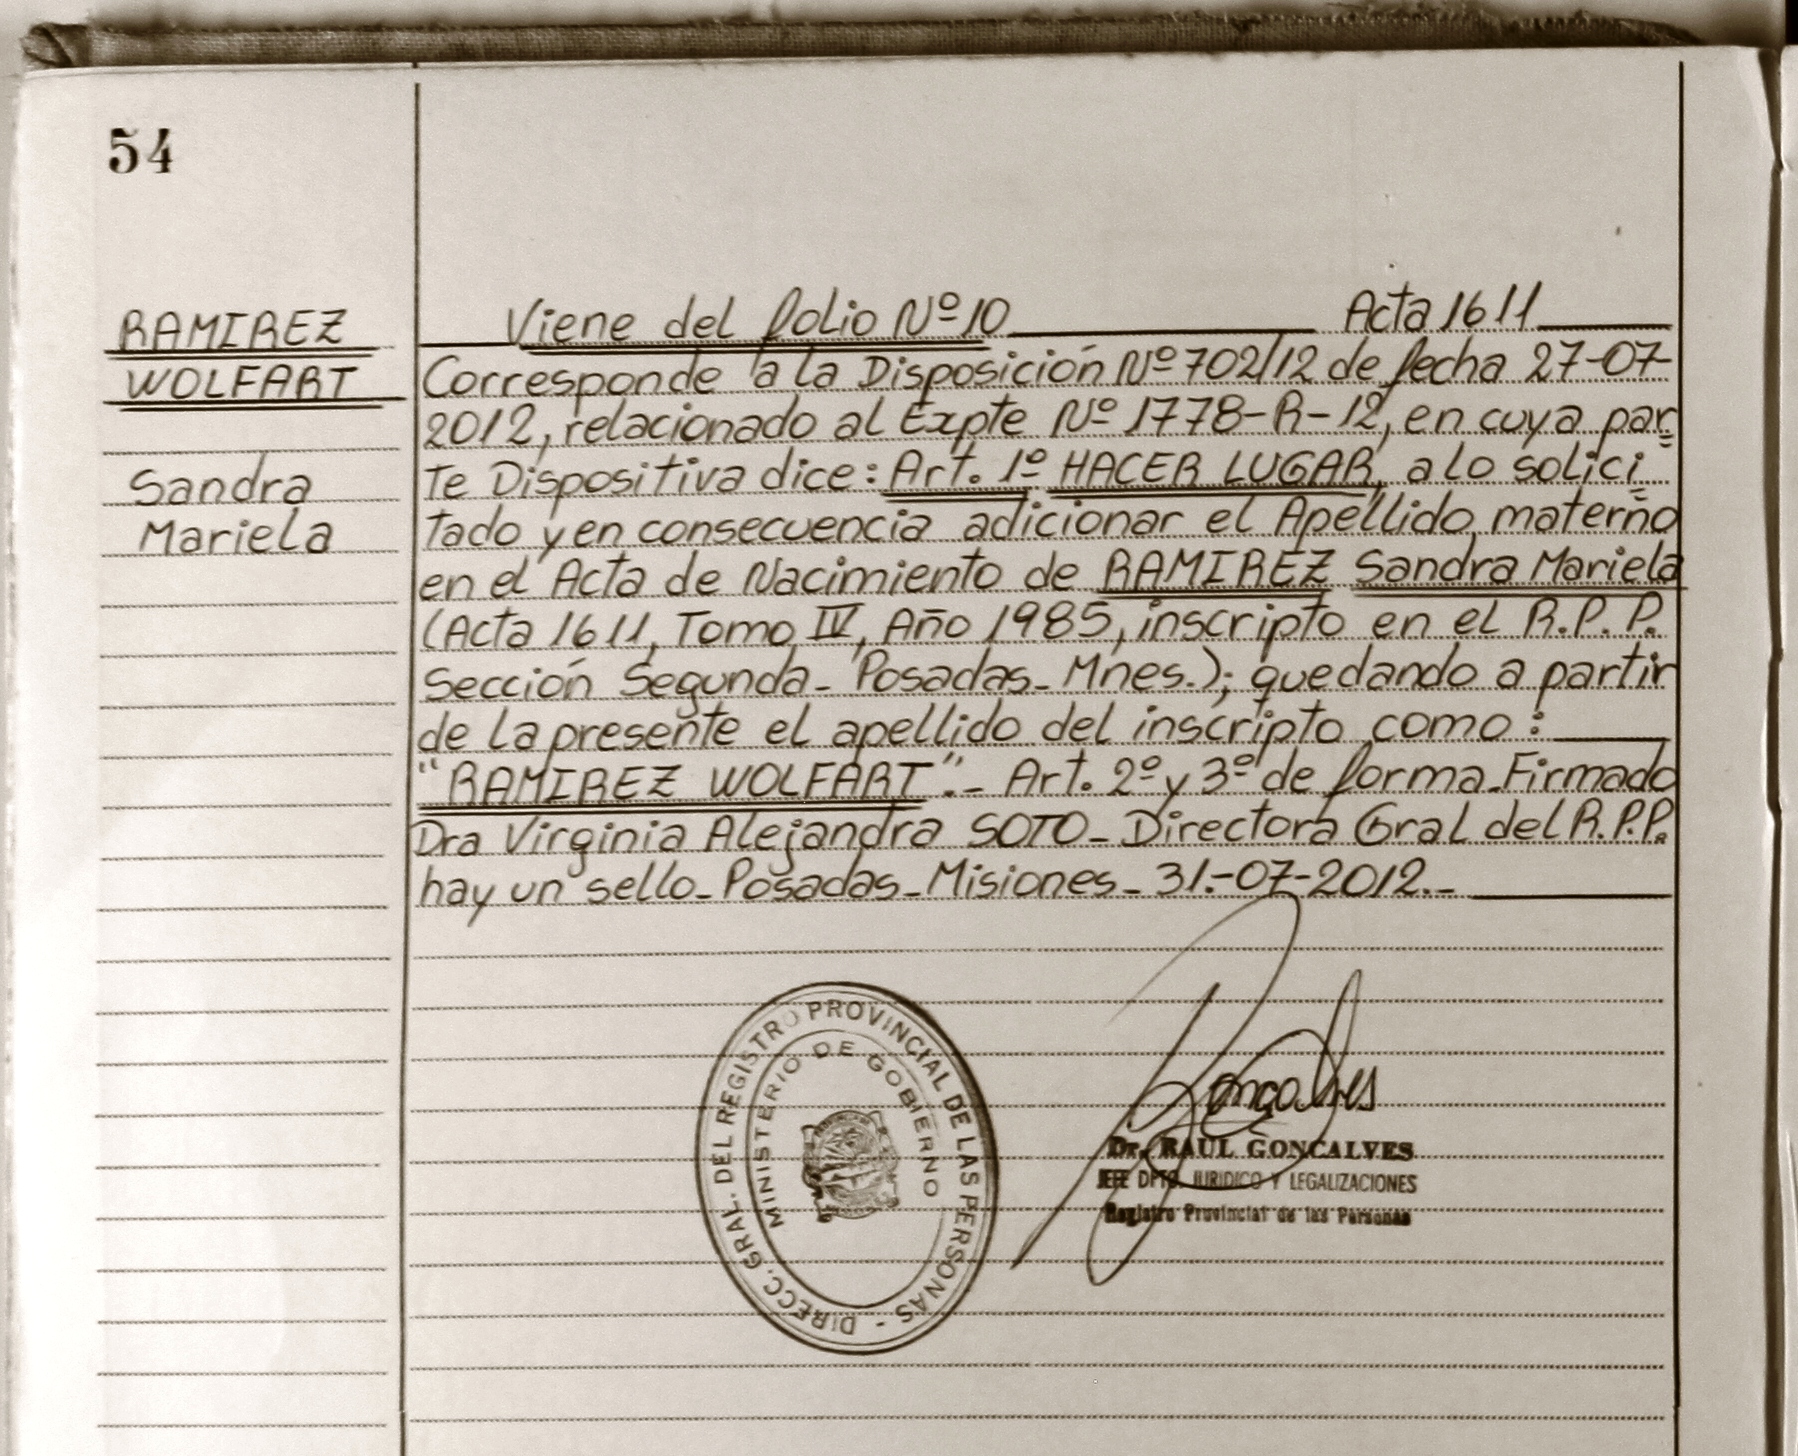 54
RAMIREZ
WOLFART
Sandra
Mariela
Viene del folio Nº 10 Acta 1611
Corresponde a la Disposición Nº 702/12 de fecha 27-07-
2012, relacionado al Expte Nº 1778-R-12, en cuya par=
te Dispositiva dice: Art. 1º HACER LUGAR, a lo solici=
tado y en consecuencia adicionar el Apellido materno
en el Acta de Nacimiento de RAMIREZ Sandra Mariela
(Acta 1611, Tomo IV, Año 1985, inscripto en el R.P.P.
Sección Segunda- Posadas- Mnes.); quedando a partir
de la presente el apellido del inscripto como:
"RAMIREZ WOLFART".- Art. 2º y 3º de forma-Firmado
Dra Virginia Alejandra SOTO- Directora Gral del R.P.P.
hay un sello- Posadas- Misiones- 31.-07-2012.-
DIRECC. GRAL. DEL REGISTRO PROVINCIAL DE LAS PERSONAS -
MINISTERIO DE GOBIERNO
Goncalves
Dr. RAUL GONCALVES
JEFE DPTO. JURIDICO Y LEGALIZACIONES
Registro Provincial de las Personas